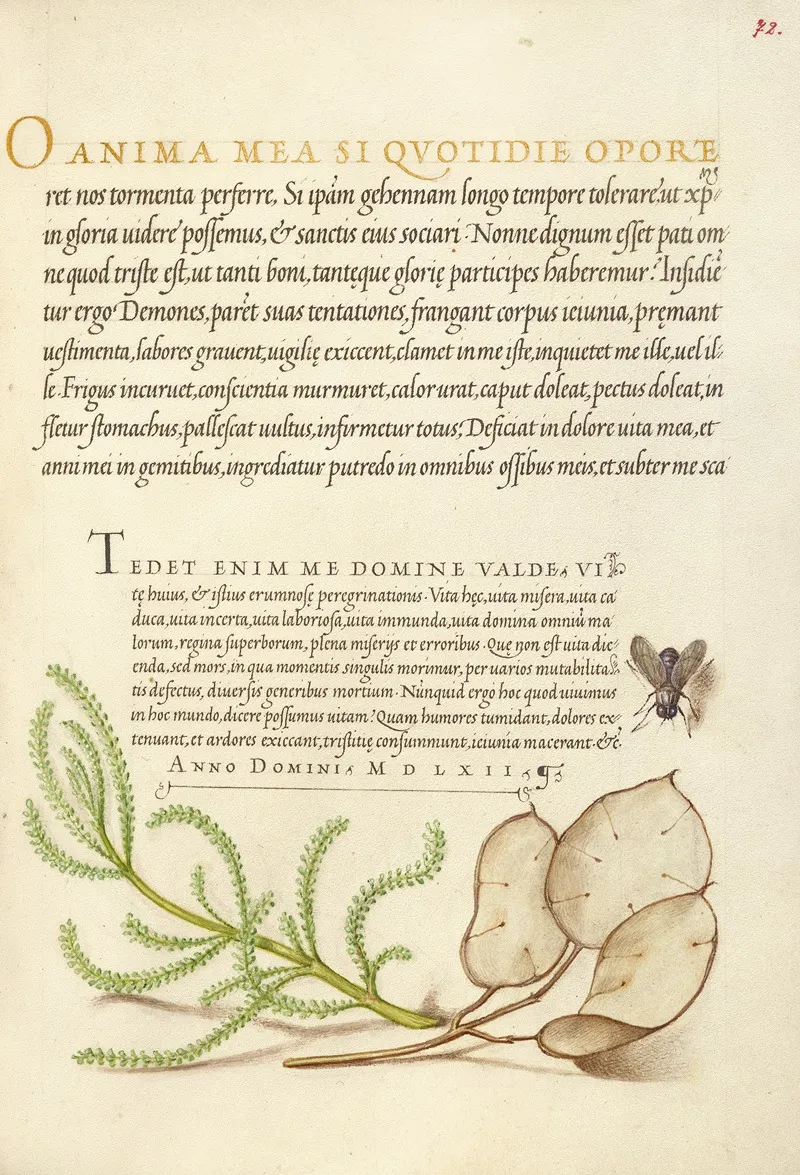 72.
O ANIMA MEA SI QVOTIDIE OPORE
ret nos tormenta perferre, Si ipãm gehennam longo tempore tolerare: ut xp̃m
in gloria uidere possemus, & sanctis eius sociari. Nonne dignum esset pati om-
ne quod triste est, ut tanti boni, tantęque glorię participes haberemur? Insidiē
tur ergo Demones, parēt suas tentationes, frangant corpus ieiunia, pręmant
uestimenta, labores grauent, uigilię exiccent, clamet in me iste, inquietet me ille, uel il-
le. Frigus incuruet, conscientia murmuret, calor urat, caput doleat, pectus doleat, in
fletur stomachus, pallescat uultus, infirmetur totus: Deficiat in dolore uita mea, et
anni mei in gemitibus, ingrediatur putredo in omnibus ossibus meis, et subter me sca
TEDET ENIM ME DOMINE VALDE, VI
tę huius, & istius erumnosę peregrinationis. Vita hęc, uita misera, uita ca
duca, uita incerta, uita laboriosa, uita immunda, uita domina omniū ma
lorum, regina superborum, plena miserijs et erroribus. Quę non est uita dic-
enda, sed mors, in qua momentis singulis morimur, per uarios mutabilita-
tis defectus, diuersis generibus mortium. Nunquid ergo hoc quod uiuimus
in hoc mundo, dicere possumus uitam? Quam humores tumidant, dolores ex-
tenuant, et ardores exiccant, tristitię consummunt, ieiunia macerant. &c.
ANNO DOMINI, M D LXII,